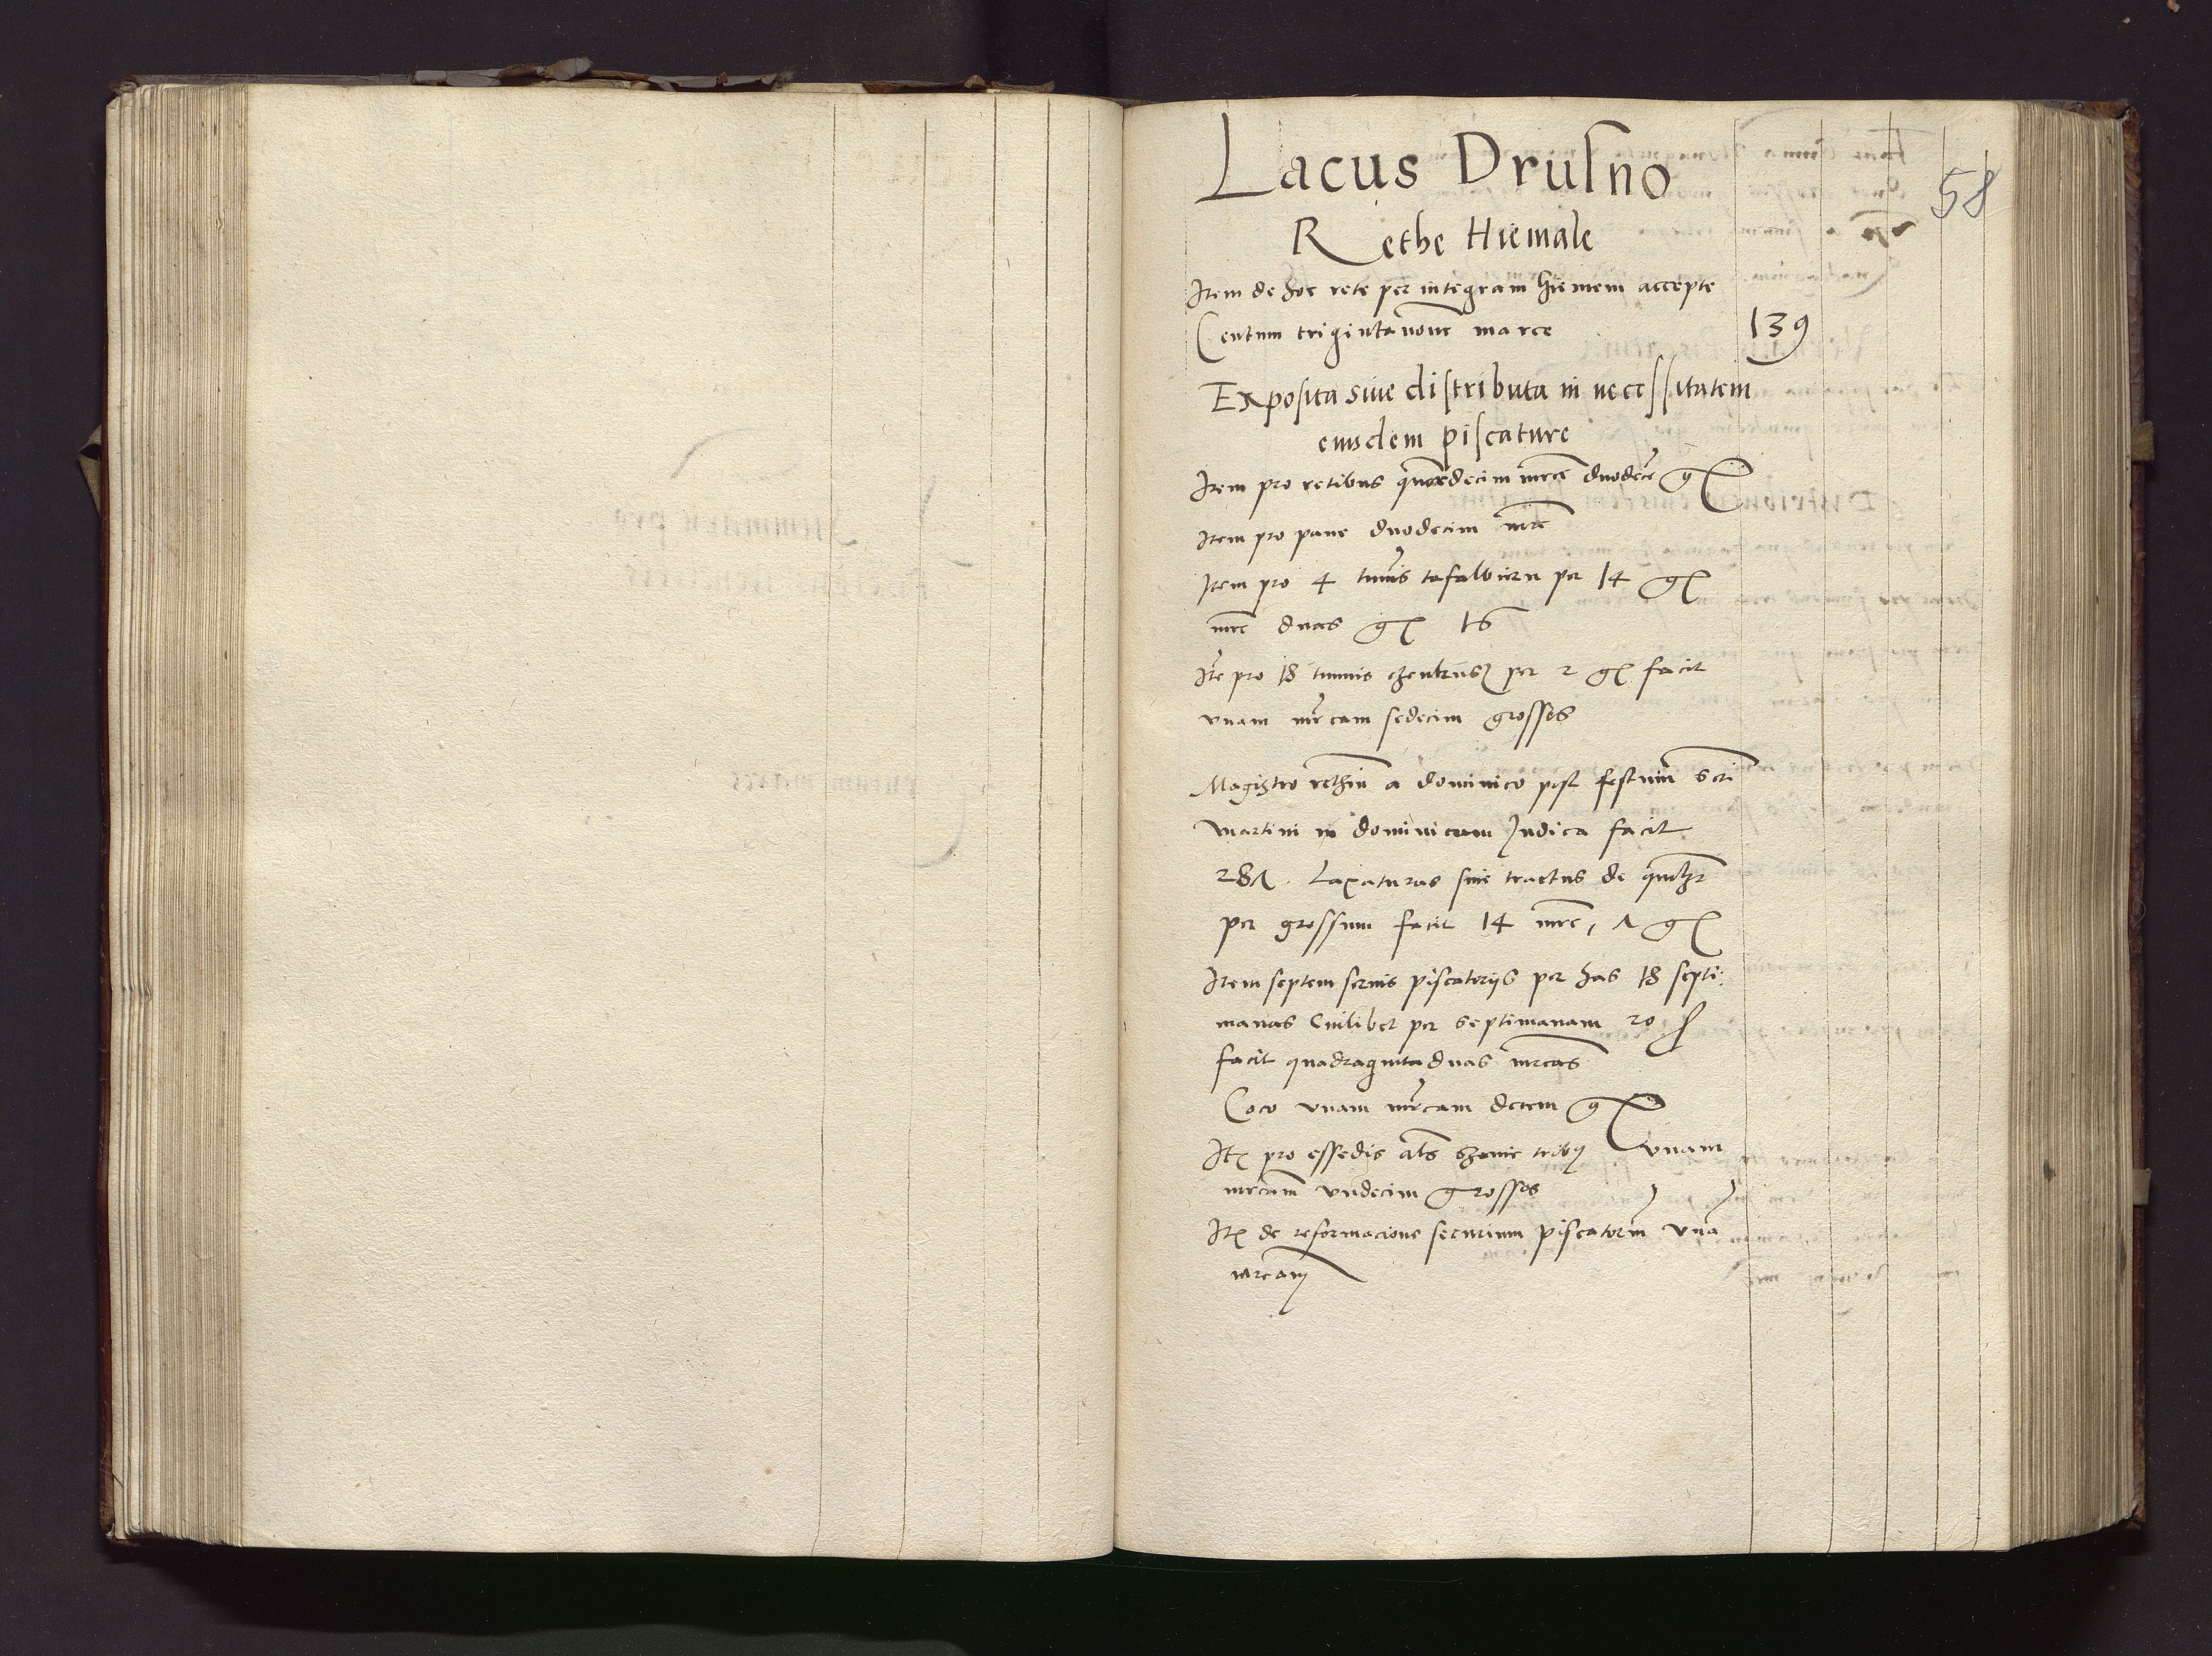 58
Lacus Drusno
Rethe Hiemale
Item de hoc rete per integram hiemem accepte
Centum trigintanove marce 139
Exposita sive distributa in necessitatem
eiusdem piscature
Item pro retibus mrce duodecē g
Item pro pane duodecim mrc
Item pro 4 tunis tafalbiern per 14 g
mrc duas g 16
Itē pro 18 tunnis per 2 g facit
unam mrcam sedecim grossos
Magistro rethiū a dominico post festum scti
Martini in dominicam Judica facit
281 . Laxaturas sive tractus de
per grossum facit 14 mrc, 1 g
Item septem servis piscatoriis per has 18 septi:
manas Cuilibet per septimanam 20
facit quadragintaduas mrcas
Coco unam mrcam decem g
It pro essedis als tribus unam
mrcam undecim grossos
It de reformacione securium piscatorum unā
mrcam